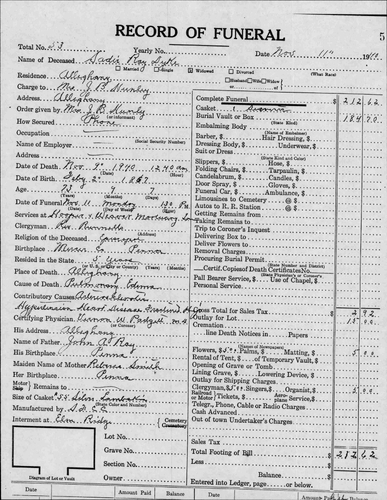 RECORD OF FUNERAL
5
Total No.
Yearly No.
Date Nov. 11" 1940
Name of Deceased Sadie Ray
Married Single Widowed Divorced
(What Race)
Residence Alleghany
Charge to Mrs. J. B.
Address Alleghany
Order given by Mrs. J. B.
(or informant)
How Secured Phone
Occupation
(Social Security Number)
Name of Employer
Address
Date of Death Nov. 9" 1940 12:40 am
Date of Birth Feby 2" 1867
Age 73 9 7
(Years) (Months) (Days)
Date of Funeral Nov. 11 Monday
Services at Hooper & Weaver Mortuary
Clergyman Rev.
Religion of the Deceased
Birthplace Penna
Resided in the State 5 years
Place of Death Alleghany
Cause of Death Pulmonary Edema
Contributory Causes Arteriosclerosis
Hypertension Heart Disease
Certifying Physician Vernon W. Padgett M.D.
(or Coroner)
His Address Alleghany
Name of Father John A. Ray
His Birthplace Penna
Maiden Name of Mother Rebecca Smith
Her Birthplace Penna
Motor Ship Remains to
Size of Casket
(State Color and Number)
Manufactured by
Interment at Elm Ridge
Cemetery
Lot No.
Grave No.
Section No.
Owner
Diagram of Lot or Vault
Complete Funeral 212 62
Casket
Burial Vault or Box 184 70
Embalming Body
(Name of Embalmer)
Barber, $ Hair Dressing, $
Dressing Body, $ Underwear, $
Suit or Dress
(State Kind and Color)
Slippers, $ Hose, $
Folding Chairs, $ Tarpaulin, $
Candelabrum, $ Candles, $
Door Spray, $ Gloves, $
Funeral Car, $ Ambulance, $
Limousines to Cemetery @ $
Autos to R. R. Station @ $
Getting Remains from
Taking Remains to
Trip to Coroner's Inquest
Delivering Box to
Deliver Flowers to
Removal Charges
Procuring Burial Permit
Certif. Copies of Death Certificates No.
(State Physician's or Coroner's)
Pall Bearer Service, $ Use of Chapel, $
Personal Service
Gross Total for Sales Tax 2 92
Outlay for Lot 15 00
Cremation
line Death Notices in Papers
(Names of Newspapers)
Flowers, $ Palms, $ Matting, $ 5 00
Rental of Tent, $ of Temporary Vault, $
Opening of Grave or Tomb
Lining Grave, $ Lowering Device, $
Outlay for Shipping Charges
Clergyman, $ Singers, $ Organist, $ 5 00
Railroad or Motor Tickets, $ Aeroplane Service, $
Telegr., Phone, Cable or Radio Charges
Cash Advanced
Out of town Undertaker's Charges
Sales Tax
Total Footing of Bill 212 62
Less
Balance
Entered into Ledger, page or below.
Date Amount Paid Balance Date Amount Paid Balance